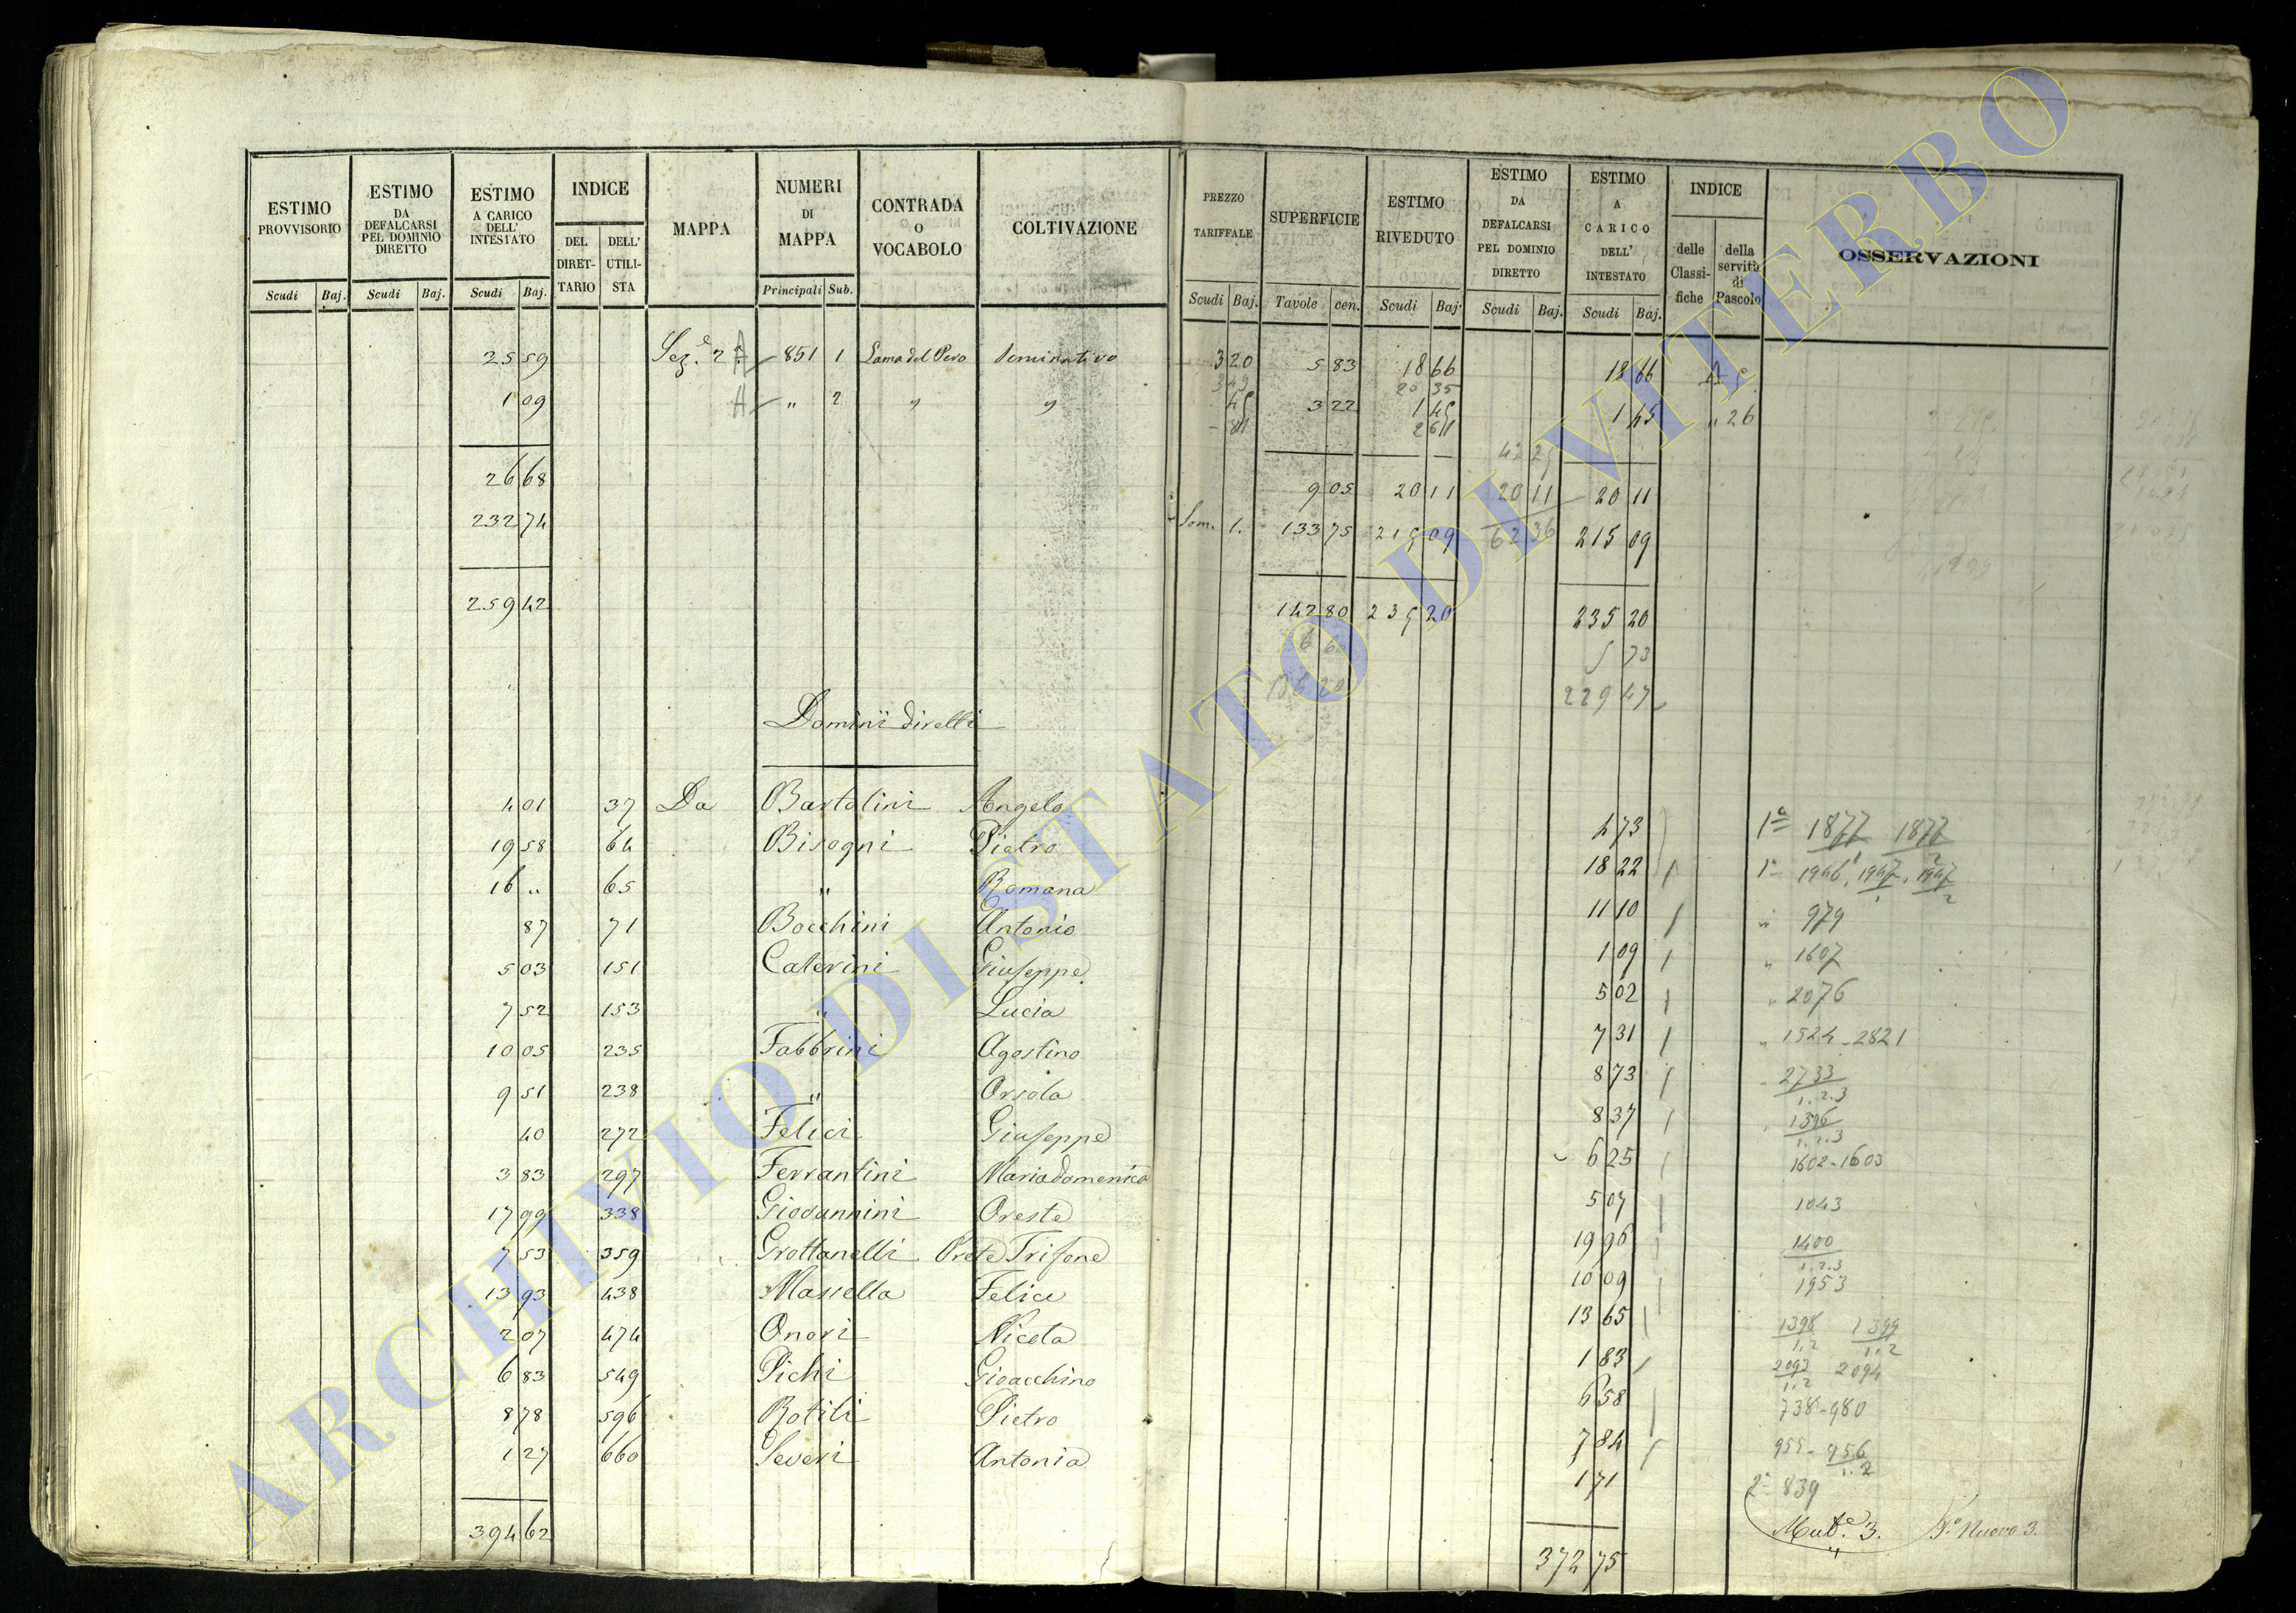 ESTIMO PROVVISORIO | ESTIMO DA DEFALCARSI PEL DOMINIO DIRETTO | ESTIMO A CARICO DELL' INTESTATO | INDICE | MAPPA | NUMERI DI MAPPA | CONTRADA O VOCABOLO | COLTIVAZIONE
DEL DIRET-TARIO | DELL' UTILI-STA
Scudi | Baj. | Scudi | Baj. | Scudi | Baj. | Principali | Sub.
25 59 Sez.e 2 A 851 1 Lama del Pero Seminativo
1 09 A " 2 " "
26 68
232 74
259 42
Dominii diretti
4 01 37 Da Bartolini Angelo
19 58 64 Bisogni Pietro
16 " 65 " Romana
87 71 Bocchini Antonio
5 03 151 Caterini Giuseppe
7 52 153 " Lucia
10 05 235 Fabbrini Agostino
9 51 238 " Orsola
40 272 Felici Giuseppe
3 83 297 Ferrantini Mariadomenica
17 99 338 Giovannini Oreste
7 53 359 Grottanelli Prete Trifone
13 93 438 Massella Felice
2 07 474 Onori Nicola
6 83 549 Pichi Gioacchino
8 78 596 Rotili Pietro
1 27 660 Severi Antonia
394 62
PREZZO TARIFFALE | SUPERFICIE | ESTIMO RIVEDUTO | ESTIMO DA DEFALCARSI PEL DOMINIO DIRETTO | ESTIMO A CARICO DELL' INTESTATO | INDICE | OSSERVAZIONI
delle Classi-fiche | della servitù di Pascolo
Scudi | Baj. | Tavole | cen. | Scudi | Baj. | Scudi | Baj. | Scudi | Baj.
3 20 5 83 18 66 18 66
20 35
45 3 22 1 45 1 45 " 26
42 25
9 05 20 11 20 11 20 11
Som. 1. 133 75 215 09 62 36 215 09
142 80 235 20 235 20
5 73
229 47
4 73 1a 1877 1877
18 22 1a 1946, 1947, 1947
11 10 " 979
1 09 " 1607
5 02 " 2076
7 31 " 1524 - 2821
8 73 " 2733
1. 2. 3
8 37 1396
1. 2. 3
6 25 1602 - 1603
5 07 1043
19 96 1400
1. 2. 3
10 09 1953
13 65 1398 1399
1, 2 1, 2
1 83 2093 2094
1, 2
6 58 738 - 980
7 84 955 - 956
1. 2
1 71 2a 839
Mut.e 3. N.o Nuovo 3.
372 75
ARCHIVIO DI STATO DI VITERBO